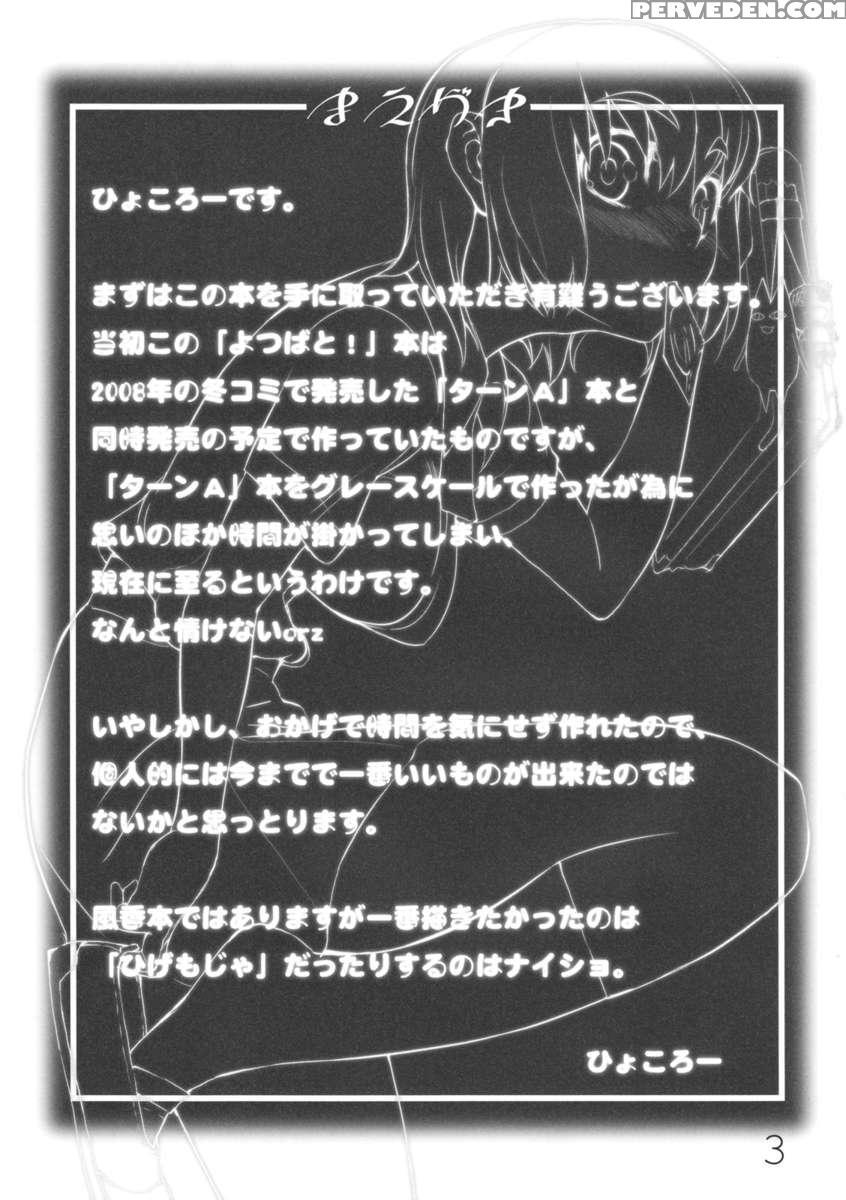 PERVEDEN.COM
まえがき
ひょころーです。
まずはこの本を手に取っていただき有難うございます。
当初この「よつばと！」本は
2008年の冬コミで発売した「ターンA」本と
同時発売の予定で作っていたものですが、
「ターンA」本をグレースケールで作ったが為に
思いのほか時間が掛かってしまい、
現在に至るというわけです。
なんと情けないorz
いやしかし、おかげで時間を気にせず作れたので、
個人的には今までで一番いいものが出来たのでは
ないかと思っとります。
風香本ではありますが一番描きたかったのは
「ひげもじゃ」だったりするのはナイショ。
ひょころー
3